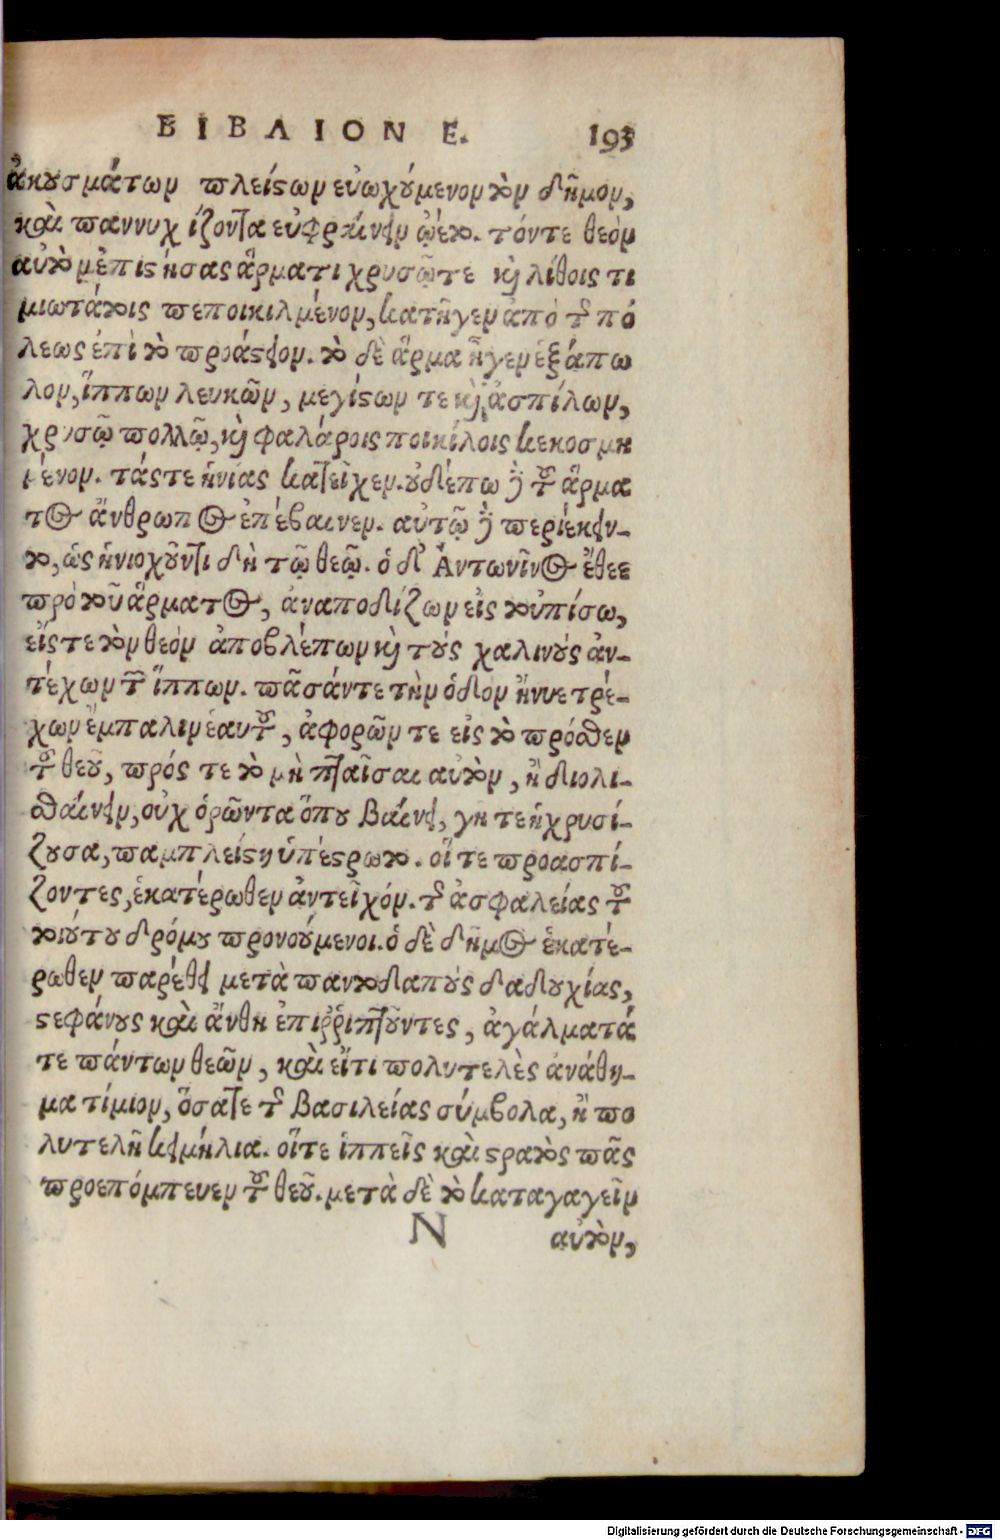 ΒΙΒΛΙΟΝ Ε. 193
ἀκουσμάτων πλείστων εὐωχούμενον τὸν δῆμον,
καὶ παννυχίζοντα εὐφραίνειν ᾤετο. τόν τε θεὸν
αὐτὸν ἐπιστήσας ἅρματι χρυσῷ τε καὶ λίθοις τι
μιωτάτοις πεποικιλμένον, κατῆγεν ἀπὸ τῆς πό
λεως ἐπὶ τὸ προάστειον. τὸ δὲ ἅρμα ἦγεν ἑξάπω
λον, ἵππων λευκῶν, μεγίστων τε καὶ ἀσπίλων,
χρυσῷ πολλῷ, καὶ φαλάροις ποικίλοις κεκοσμη
μένον. τάς τε ἡνίας κατεῖχεν. οὐδέπω γὰρ τοῦ ἅρμα
τος ἄνθρωπος ἐπέβαινεν. αὐτῷ γὰρ περιέκειν-
το, ὡς ἡνιοχοῦντι δὴ τῷ θεῷ. ὁ δ' Ἀντωνῖνος ἔθεε
πρὸ τοῦ ἅρματος, ἀναποδίζων εἰς τοὐπίσω,
εἴς τε τὸν θεὸν ἀποβλέπων καὶ τοὺς χαλινοὺς ἀν-
τέχων τῶν ἵππων. πᾶσάν τε τὴν ὁδὸν ἤνυε τρέ-
χων ἔμπαλιν ἑαυτοῦ, ἀφορῶν τε εἰς τὸ πρόσθεν
τοῦ θεοῦ, πρός τε τὸ μὴ πταῖσαι αὐτὸν, ἢ διολι-
σθαίνειν, οὐχ ὁρῶντα ὅπου βαίνει, γῆ τε ἡ χρυσί-
ζουσα, παμπλείστη ὑπέστρωτο. οἵ τε προασπί-
ζοντες, ἑκατέρωθεν ἀντεῖχόν. τῆς ἀσφαλείας τοῦ
τοιούτου δρόμου προνοούμενοι. ὁ δὲ δῆμος ἑκατέ-
ρωθεν παρέθει μετὰ παντοδαποὺς δαδουχίας,
στεφάνους καὶ ἄνθη ἐπιῤῥιπτοῦντες, ἀγάλματά
τε πάντων θεῶν, καὶ εἴ τι πολυτελὲς ἀνάθη-
μα τίμιον, ὅσα τε τῆς βασιλείας σύμβολα, ἢ πο
λυτελῆ κειμήλια. οἵ τε ἱππεῖς καὶ στρατὸς πᾶς
προεπόμπευεν τοῦ θεοῦ. μετὰ δὲ τὸ καταγαγεῖν
N αὐτὸν,
Digitalisierung gefördert durch die Deutsche Forschungsgemeinschaft - DFG